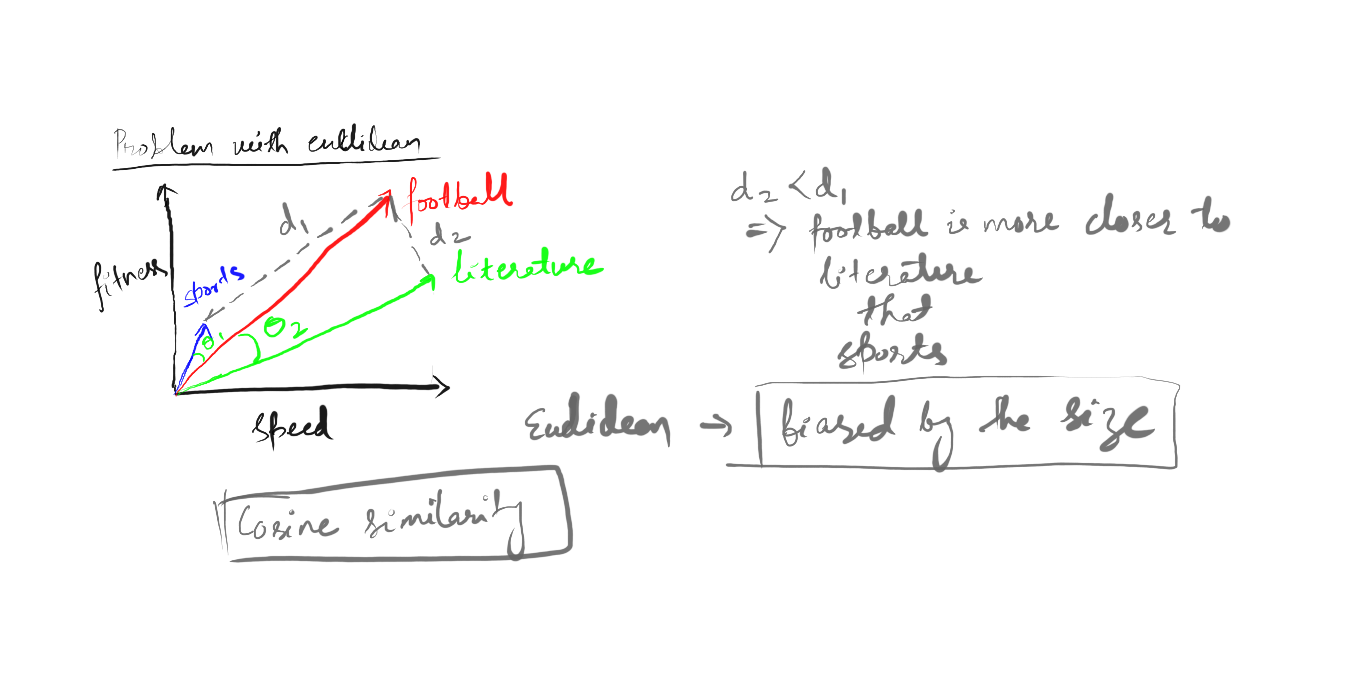 Problem with euclidean
fitness
sports
d1
football
d2
literature
θ1
θ2
speed
d2 < d1
=> football is more closer to
literature
that
sports
Euclidean → biased by the size
Cosine similarity